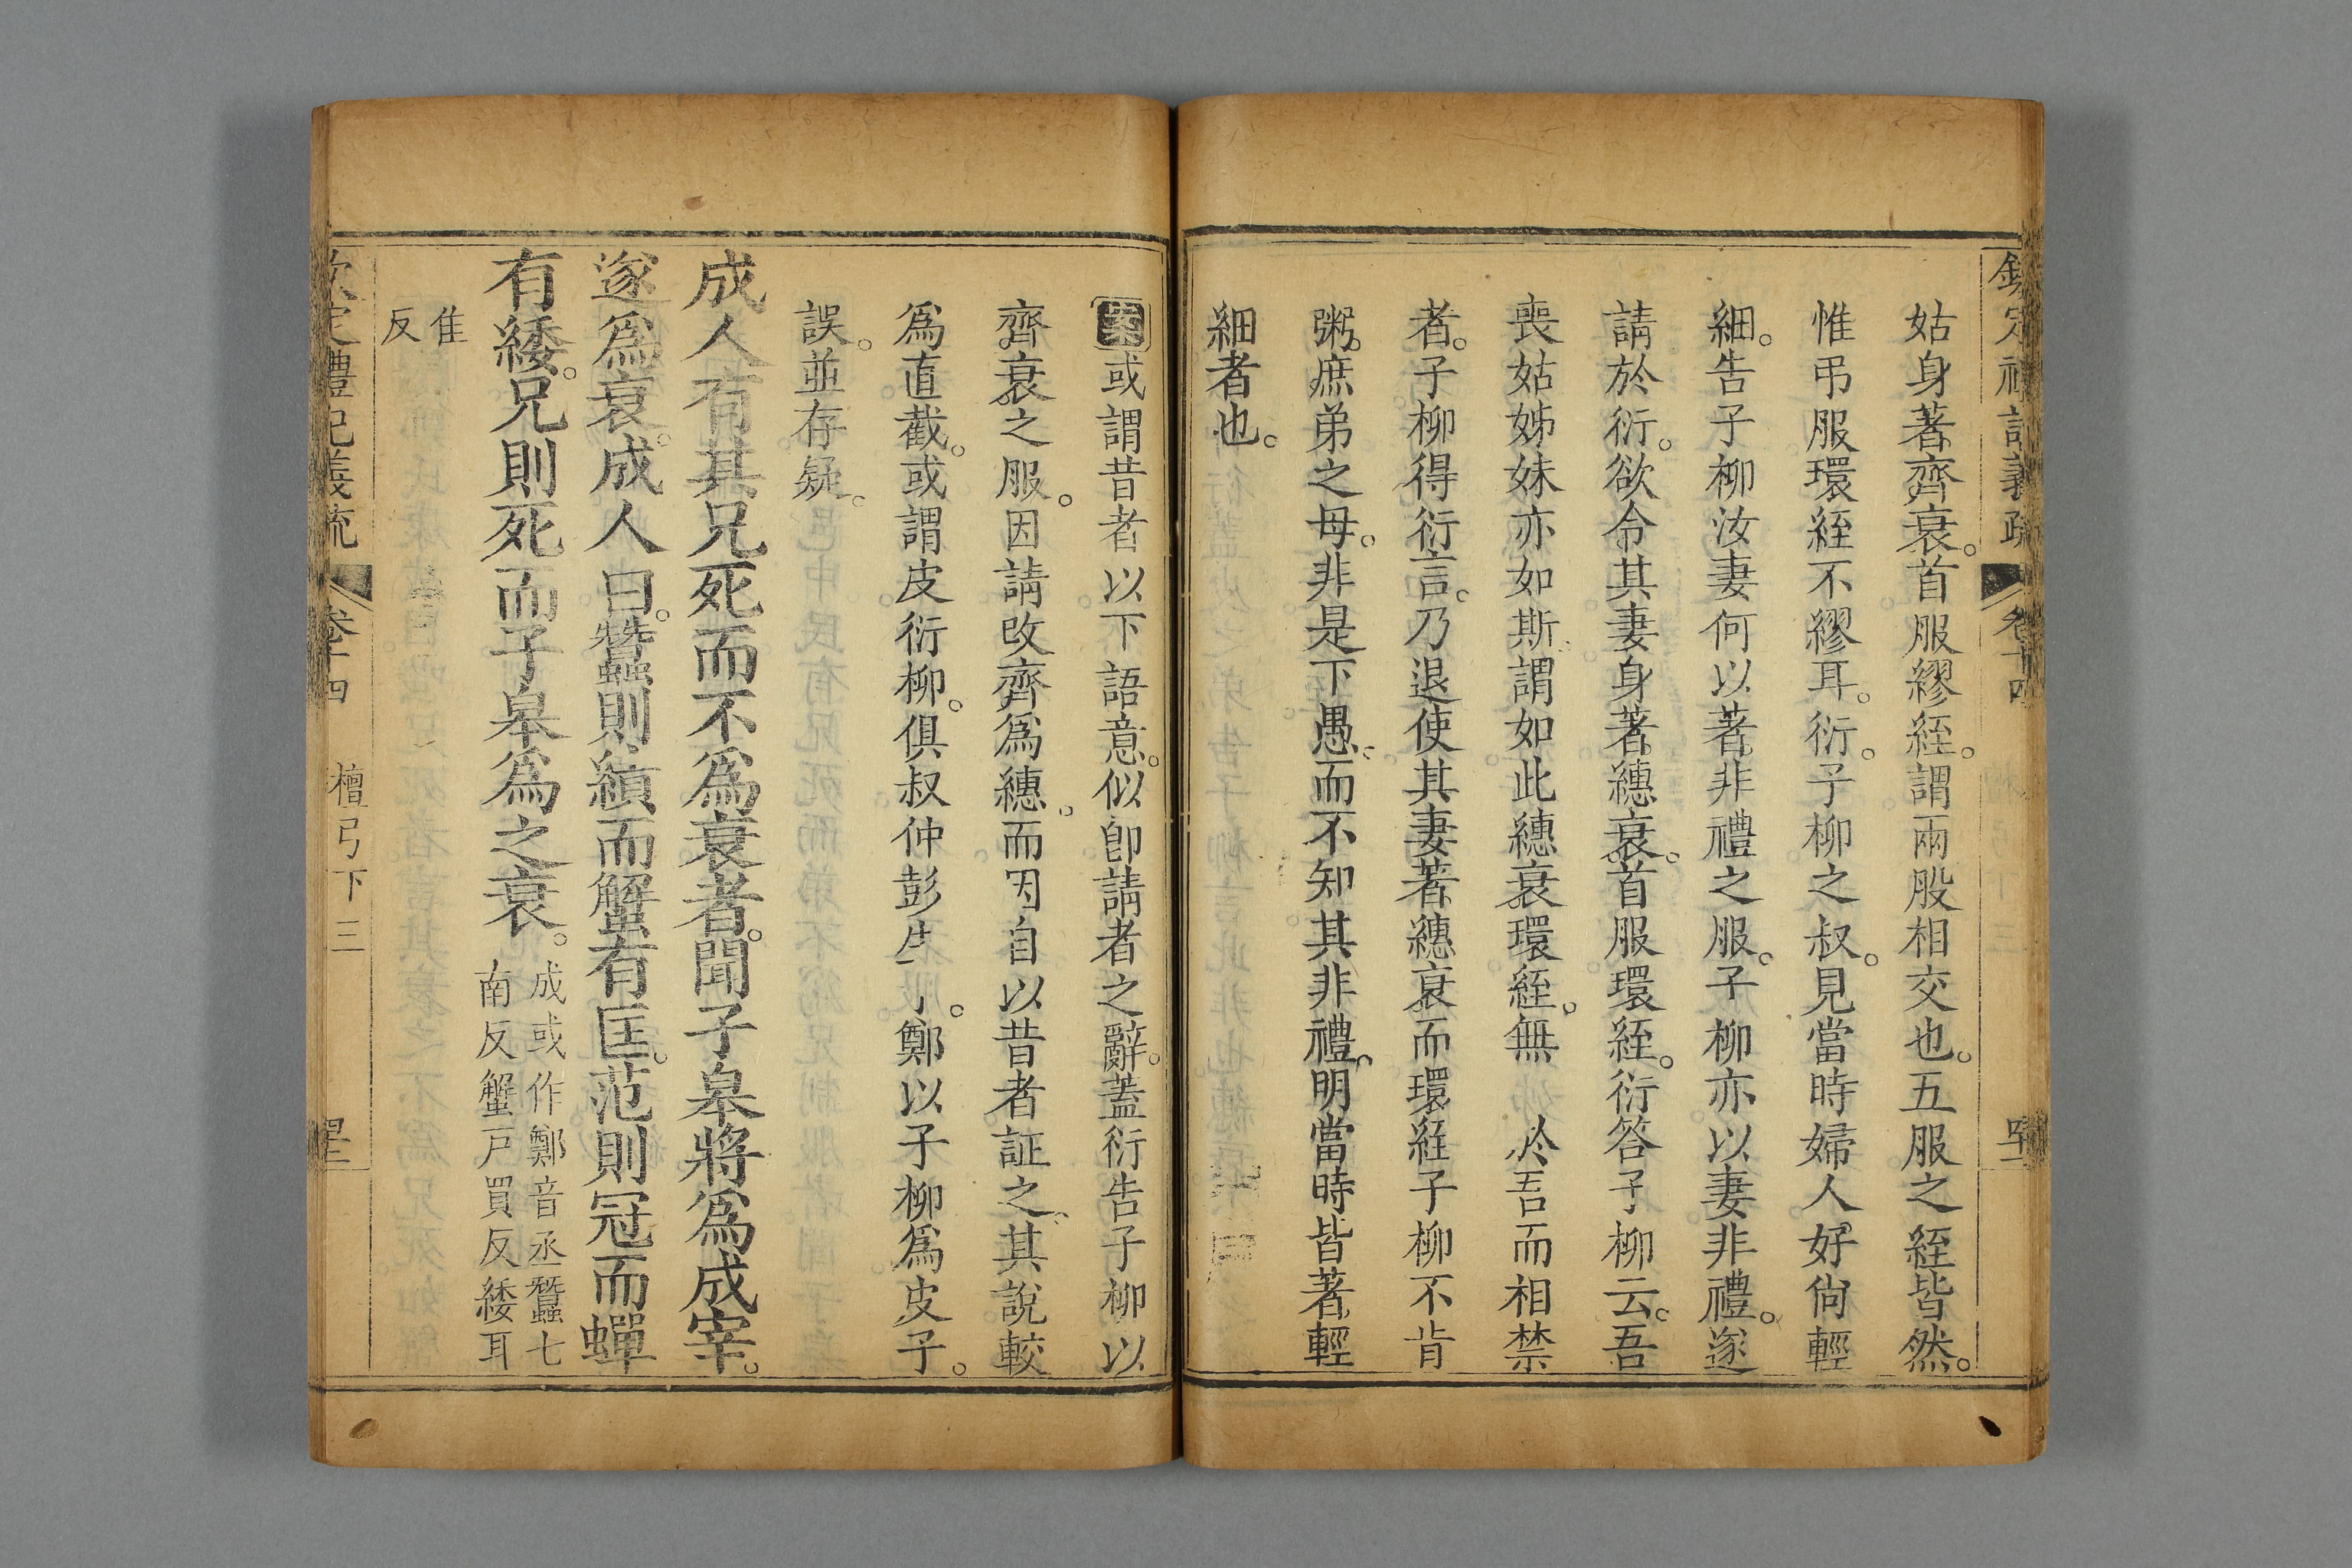 姑身著齊衰。首服繆絰。謂兩股相交也。五服之絰皆然。
惟弔服環絰不繆耳。衍。子柳之叔。見當時婦人好尙輕
細。告子柳汝妻何以著非禮之服。子柳亦以妻非禮。遂
請於衍。欲令其妻身著繐衰。首服環絰。衍答子柳云。吾
喪姑姊妹亦如斯。謂如此繐衰環絰。無 於吾而相禁
者。子柳得衍言。乃退使其妻著繐衰而環絰子柳不肯
粥庶弟之母。非是下愚。而不知其非禮。明當時皆著輕
細者也。
案或謂昔者以下語意。似卽請者之辭。蓋衍告子柳以
齊衰之服。因請改齊爲繐。而因自以昔者証之。其說較
爲直截。或謂皮衍柳。俱叔仲彭生 。鄭以子柳爲皮子。
誤。並存疑。
成人有其兄死而不爲衰者。聞子皋將爲成宰。
遂爲衰。成人曰。蠶則績而蟹有匡。范則冠而蟬
有緌。兄則死而子皋爲之衰。成或作郕音丞蠶七
南反蟹戸買反緌耳
隹
反
欽定禮記義疏 卷十四 檀弓下三